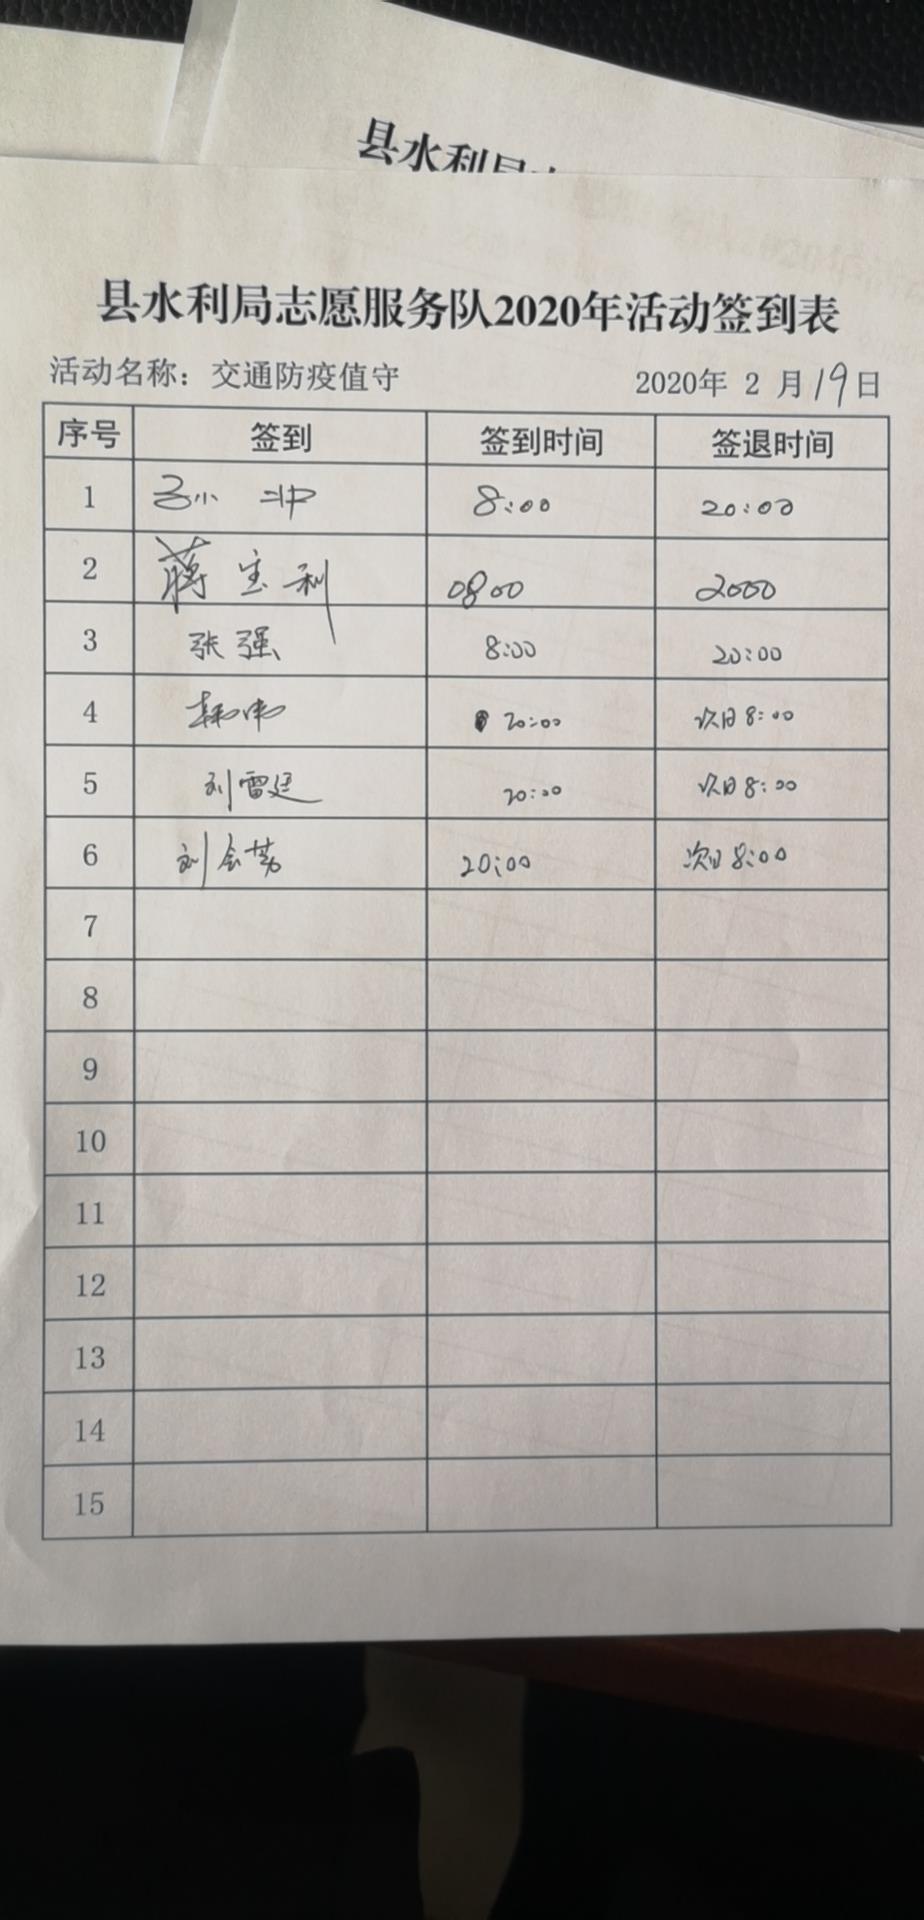 县水利局
县水利局志愿服务队2020年活动签到表
活动名称：交通防疫值守 2020年 2 月19日
序号 签到 签到时间 签退时间
1 8:00 20:00
2 蒋宝利 0800 2000
3 张强 8:00 20:00
4 韩伟 20:00 次日8:00
5 刘雷廷 20:00 次日8:00
6 刘 20:00 次日8:00
7
8
9
10
11
12
13
14
15